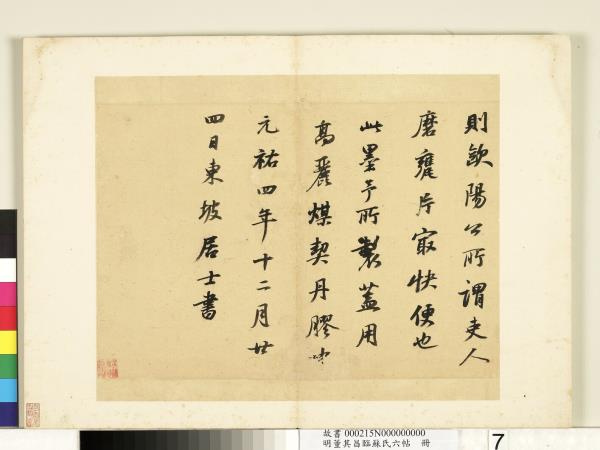 則歐陽公所謂吏人
磨甕片寂快便也
此墨予所製蓋用
高麗煤契丹膠
元祐四年十二月廿
四日東坡居士書
故書 000215N000000000
明董其昌臨蘇氏六帖 冊
7